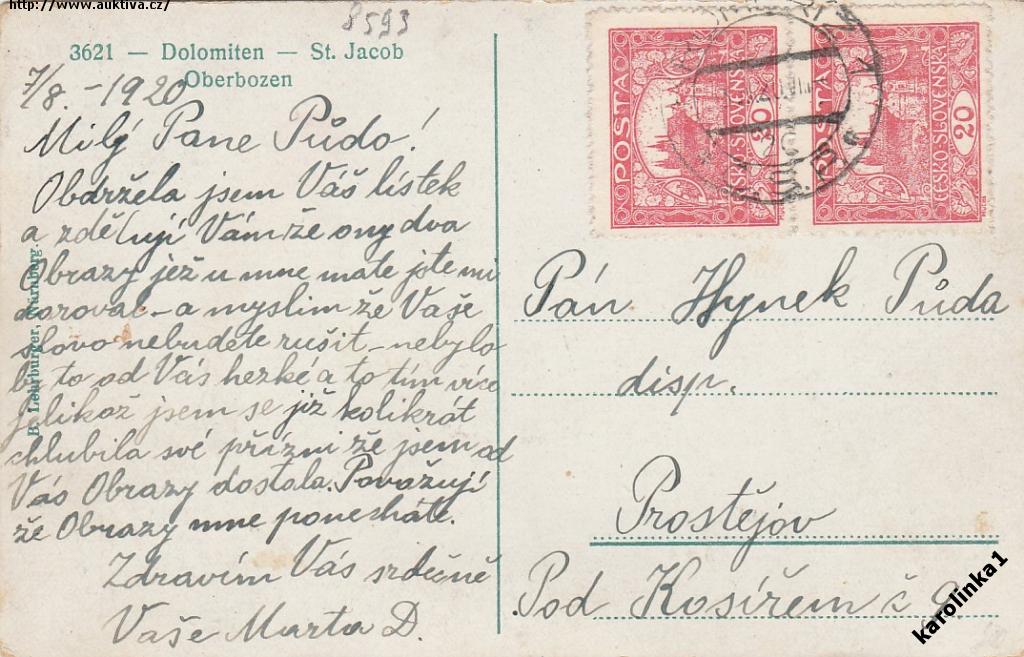 http://www.auktiva.cz/
8593
3621 — Dolomiten — St. Jacob
Oberbozen
7/8. - 1920
Milý Pane Půdo!
Obdržela jsem Váš lístek
a zděluji Vám že ony dva
Obrazy jež u mne mate jste mi
daroval - a myslim že Vaše
slovo nebudete rušit - nebylo
by to od Vás hezké a to tím více
jelikož jsem se již kolikrát
chlubila své přízni že jsem od
Vás Obrazy dostala. Považuji
že Obrazy mne ponecháte.
Zdravím Vás srdečně
Vaše Marta D.
B. Lehrburger, Nürnberg.
POŠTA
ČESKO-SLOVENSKÁ
20
POŠTA
ČESKO-SLOVENSKÁ
20
Pán Hynek Půda
disp.
Prostějov
Pod Kosířem č
karolinka1